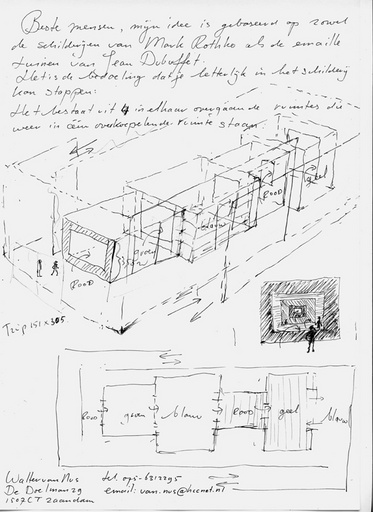 Beste mensen, mijn idee is gebaseerd op zowel
de schilderijen van Mark Rothko als de emaille
tuinen van Jean Dubuffet.
Het is de bedoeling dat je letterlijk in het schilderij
kan stappen:
Het bestaat uit 4 in elkaar overgaande ruimtes die
weer in één overkoepelende ruimte staan.
geel
ROOD
blauw
groen
ROOD
ROOD
groen
blauw
ROOD
geel
blauw
Walter van Nus
De Dreliman 29
1507CT Zaandam
tel. 075-6312295
email: van.nus@hccnet.nl